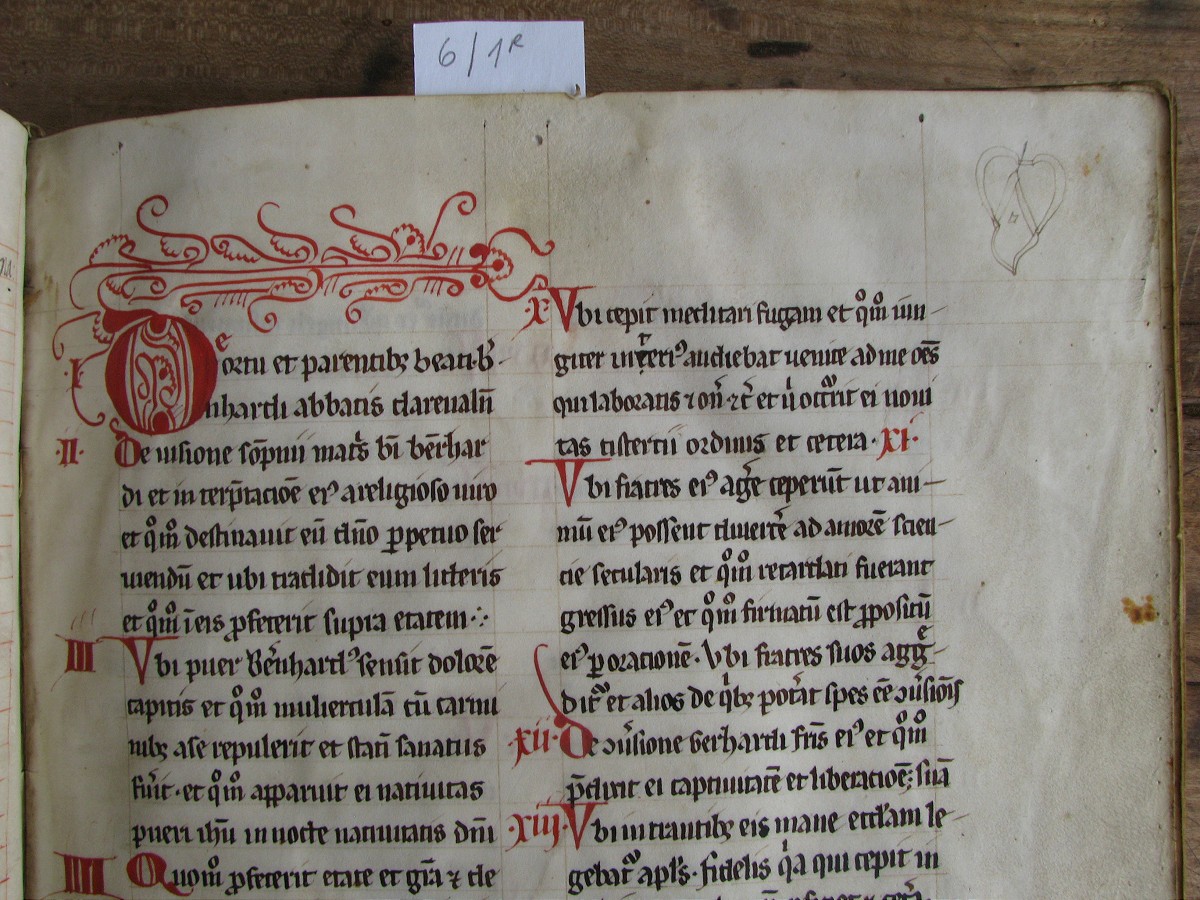 6/1R
De
I ortu et parentibꝫ beati b̄·
nhardi abbatis clareuall̄
·II· De uisione sōpnii mat̄s bī bērhar
di et in terp̄tacioē eiꝰ a religioso uiro
et qͦm̄ destinauit eū dn̄o ꝑpetuo ser
uiendū et ubi tradidit eum litteris
et qͦm̄ ī eis ꝓfecerit supra etatem
III Vbi puer Bērnhardꝰ sensit dolorē
capitis et qͦm̄ mulierculā cū carmi
nibꝫ a se repulerit et statī sanatus
fu̓it · et qͦm̄ apparuit ei natiuitas
pueri ihū in nocte natiuitatis dn̄i
IIII Quom̄ ꝓfecerit etate et gr̄a ⁊ de
·X· Vbi cepit meditari fugam et qͦm̄ iūn-
giter in teriꝰ audiebat uenite ad me oēs
qui laboratis ⁊ on̄ ⁊c̄ et occ̄rit ei noui
tas cistercii ordinis et cetera · XI·
Vbi fratres eiꝰ aḡe ceperūt ut ani-
mū eiꝰ possent diuert̓e ad amorē scien-
cie secularis et qͦm̄ retardati fuerant
gressus eiꝰ et qͦm̄ firmatū est ꝓpositū
eiꝰ ꝑ oracionē · Vbi fratres suos agge
dit᷑ et alios de qͥbꝫ pot̓at spes eē ↄu̓sion̄is
·xii· De ↄu̓sione Gerhardi fr̄is eiꝰ et qͦm̄
p̄dixit ei captiuitatē et liberacioē suā
·xiij· Vbi intrantibꝫ eis mane ecclʼam le-
gebat᷑ apl̓s · fidelis qͥa qui cepit in